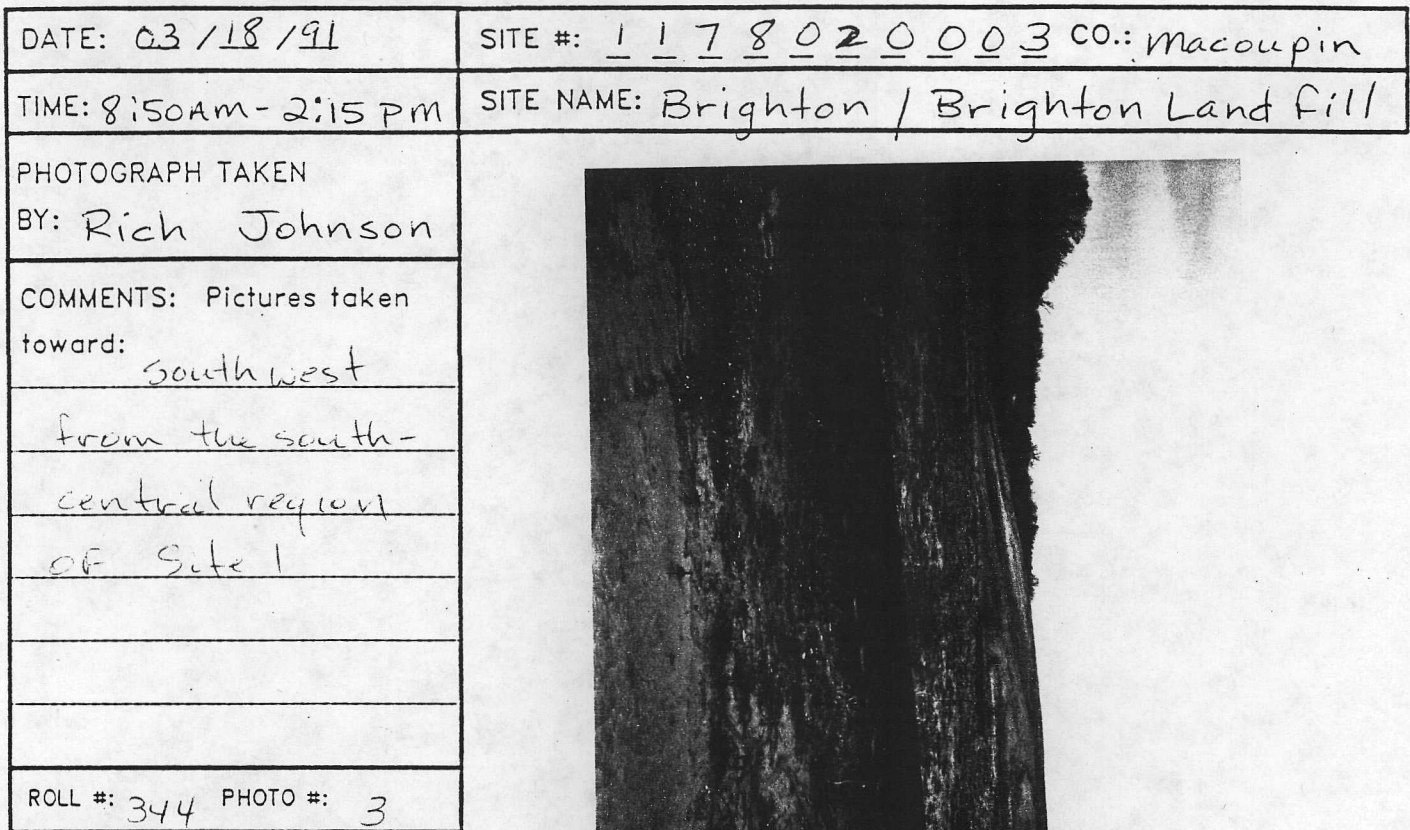 DATE: 03/18/91
SITE #: 1178020003 CO.: Macoupin
TIME: 8:50AM-2:15PM
SITE NAME: Brighton / Brighton Land fill
PHOTOGRAPH TAKEN
BY: Rich Johnson
COMMENTS: Pictures taken
toward:
southwest
from the south-
central region
OF Site 1
ROLL #: 344 PHOTO #: 3